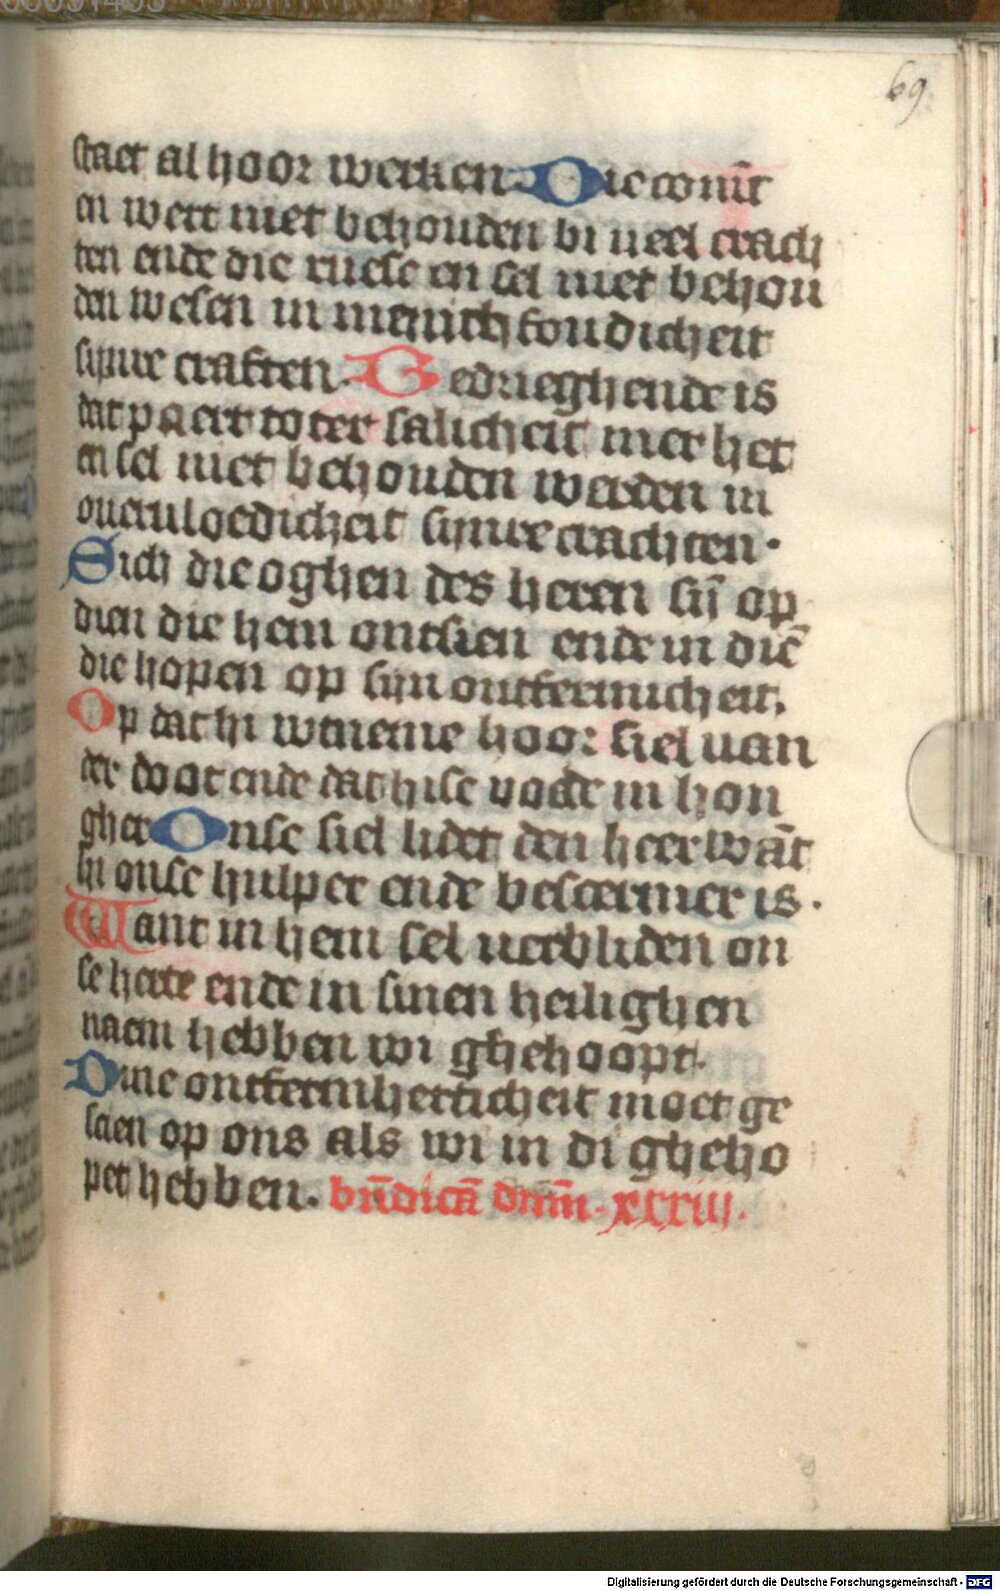 69
staet al hoor werken. Die coninc
en wert niet behouden bi ueel crach
ten ende die ruese en sel niet behou
den wesen in menich foudicheit
sijnre craften. Gedrieghende is
dat paert toter salicheit mer het
en sel niet behouden werden in
oueruloedicheit sijnre crachten.
Sich die oghen des heren sij̄ op
dien die hem ontsien ende in diē
die hopen op sijn ontfermicheit.
Op dat hi wtneme hoor siel uan
der doot ende dat hise voede in hon
gher Onse siel lidet den heer wāt
hi onse hulper ende bescermer is.
Want in hem sel uerbliden on
se herte ende in sinen heilighen
naem hebben wi ghehoopt.
Dine ontfermherticheit moet ge
scien op ons als wi in di gheho
pet hebben. bn̄dicā dn̄m. xxxiij.
Digitalisierung gefördert durch die Deutsche Forschungsgemeinschaft - DFG